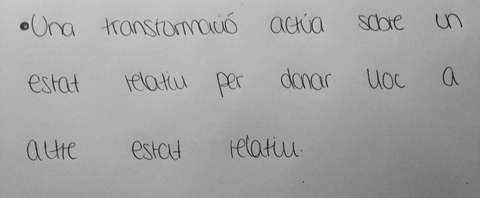 •Una transformació actúa sobre un
estat relatiu per donar lloc a
altre estat relatiu.